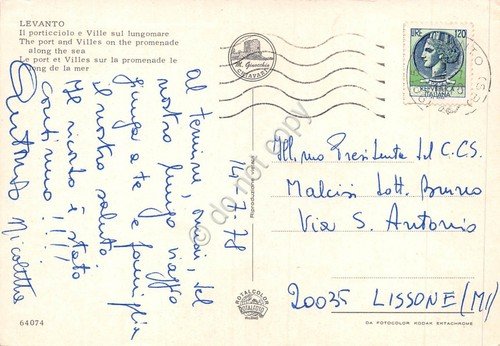 LEVANTO
Il porticciolo e Ville sul lungomare
The port and Villes on the promenade
along the sea
Le port et Villes sur la promenade le
long de la mer
14-7-78
Al termine, ormai, del
nostro lungo viaggio
giunga a te e famiglia
il nostro saluto.
Il ricordo è stato
continuo!!!!
Antonio Nicoletta
64074
M. Ginocchio
CHIAVARI
LIRE 120
REPUBBLICA
ITALIANA
do not copy
ROTALCOLOR
ROTALFOTO
MILANO
Ill.mo Presidente del C.C.S.
Malcisi Dott. Bruno
Via S. Antonio
20035 LISSONE (MI)
DA FOTOCOLOR KODAK EKTACHROME